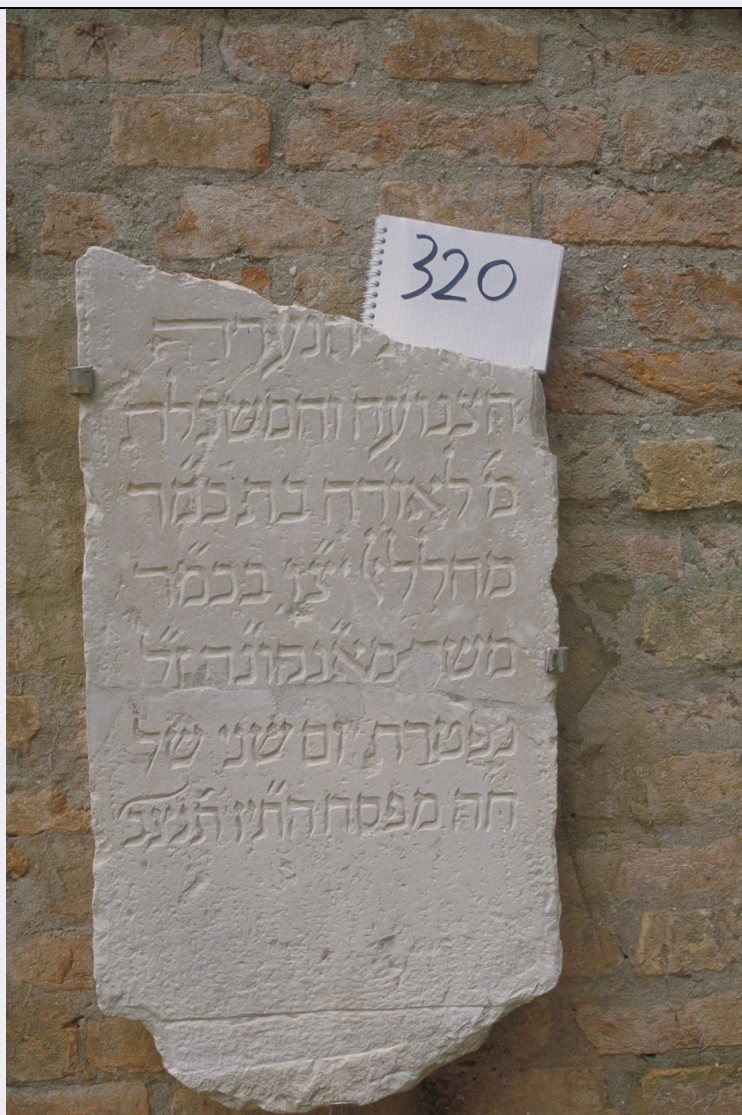 320
הנערה
הצנועה והמשכלת
מ׳ לאורה בת כמ״ר
מחללי יצ״ו בכמ״ר
משה מאנקונה ז״ל
נפטרת יום שני של
חה מפסח